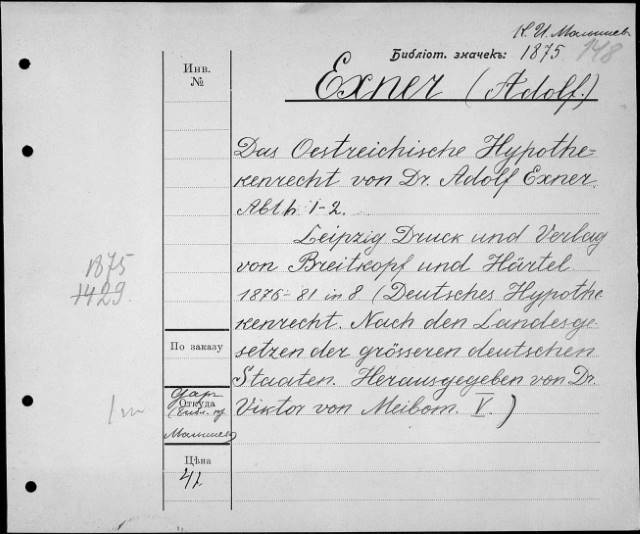 К. И. Малышев
Библіот. значекъ: 1875 148
Инв.
№
Exner (Adolf.)
Das Oestreichische Hypothe-
kenrecht von Dr. Adolf Exner.
Abth. 1-2.
Leipzig Druck und Verlag
von Breitkopf und Härtel
1876-81 in 8 (Deutsches Hypothe-
kenrecht. Nach den Landesge-
setzen der grösseren deutschen
Staaten. Herausgegeben von Dr.
Viktor von Meibom. V.)
1875
1429.
По заказу
дар
Откуда
Малышев
Цѣна